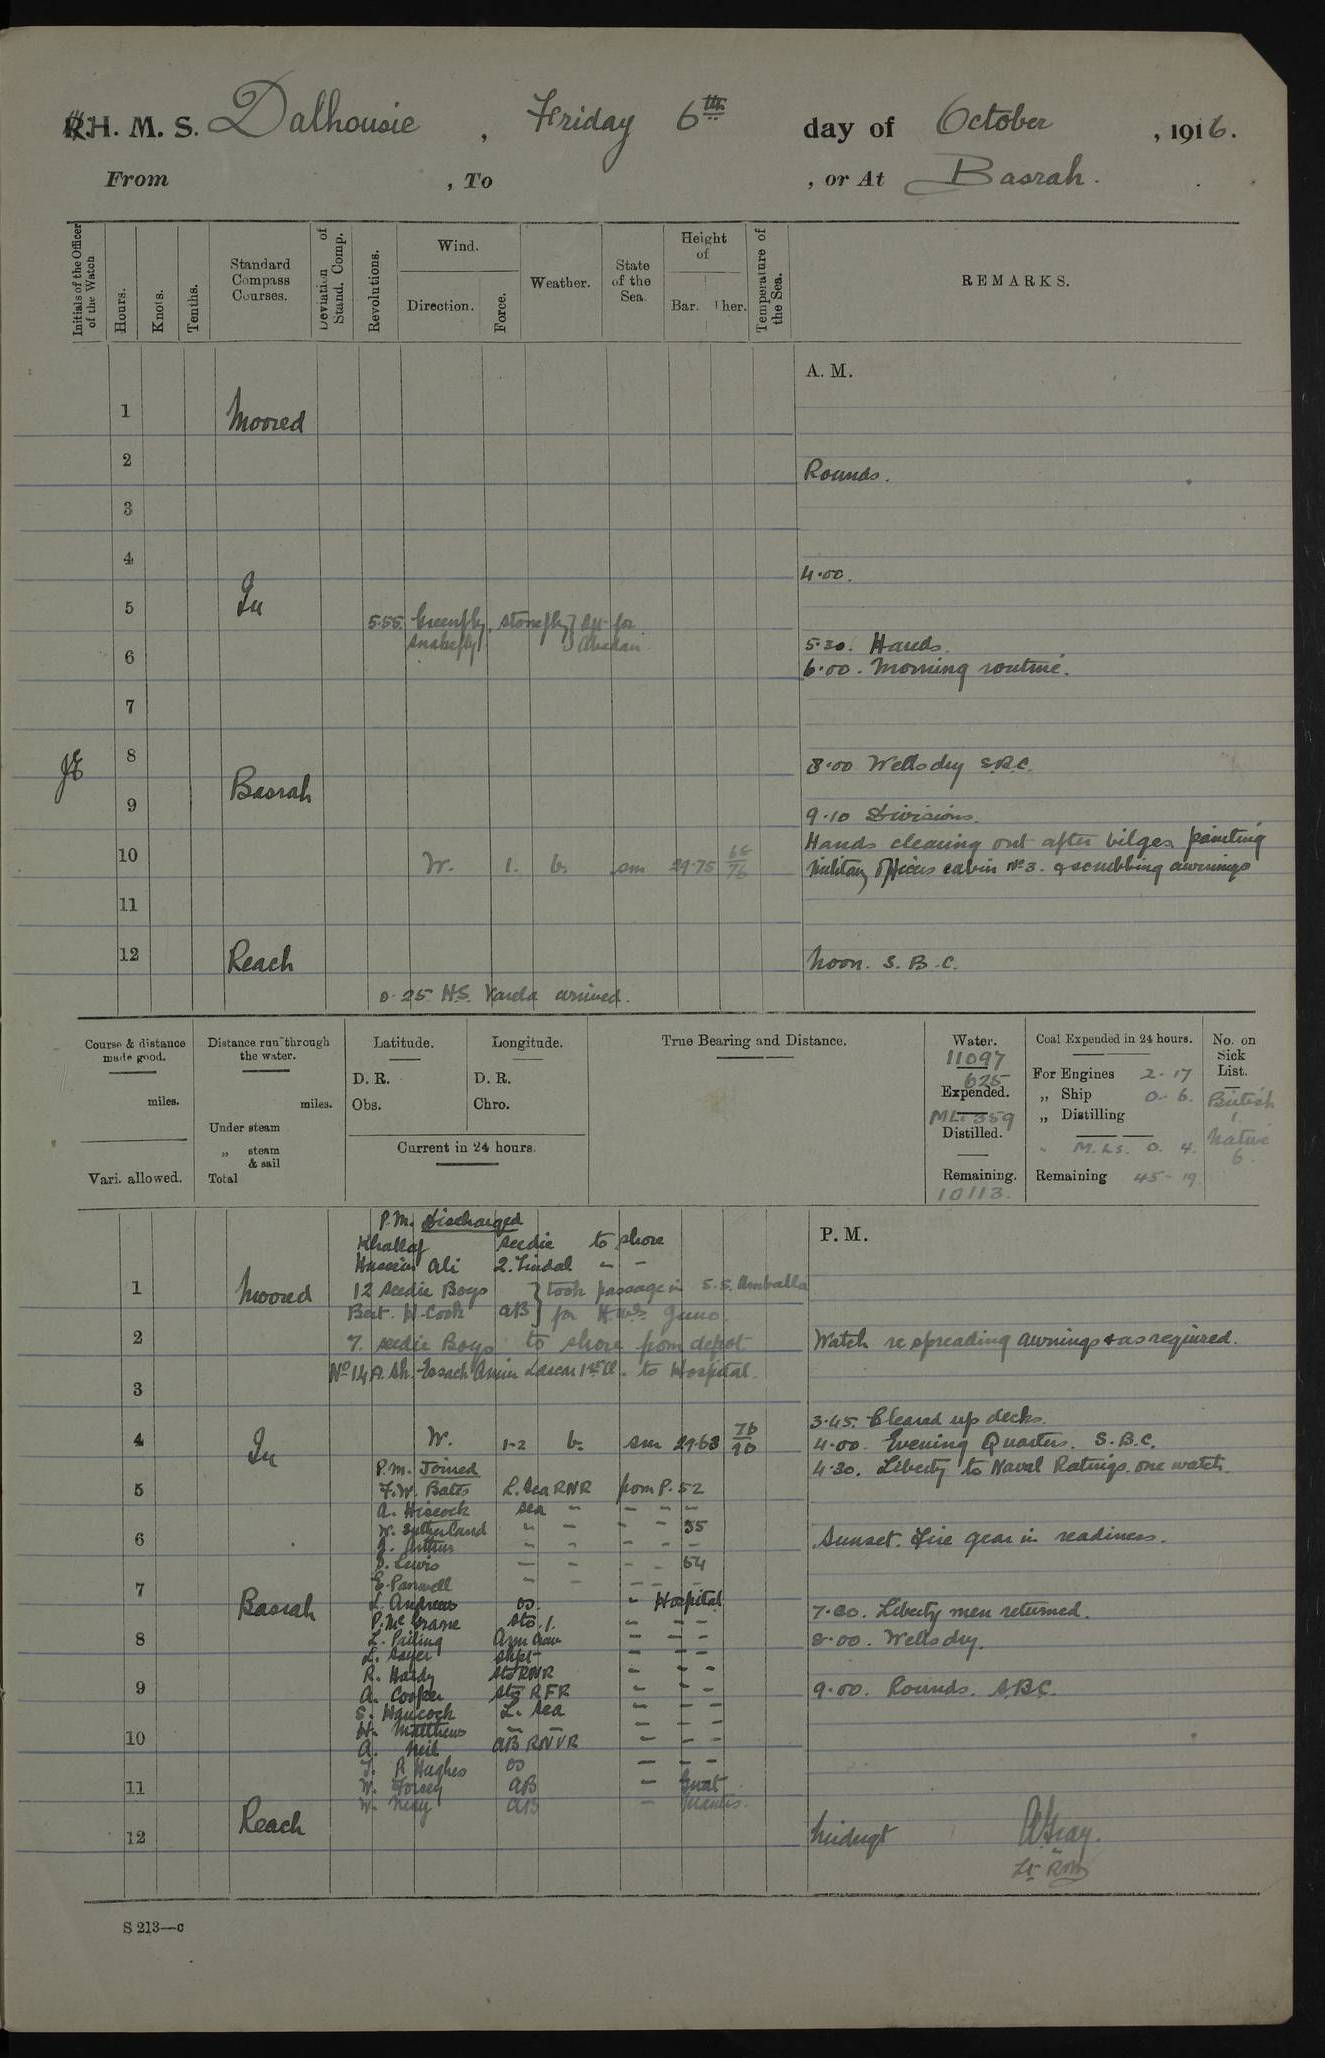 R.H. M. S. Dalhousie , Friday 6th day of October , 1916.
From , To , or At Basrah.
Initials of the Officer of the Watch
Hours.
Knots.
Tenths.
Standard Compass Courses.
Deviation of Stand. Comp.
Revolutions.
Wind.
Direction.
Force.
Weather.
State of the Sea.
Height of
Bar. Ther.
Temperature of the Sea.
REMARKS.
A. M.
1 Moored
2 Rounds.
3
4
4.00.
5 In
5.55. Greenfly, Stonefly } left for
Snakefly } Abadan.
5.30. Hands.
6
6.00. Morning routine.
7
8
8.00 Wells dry S.B.C.
Basrah
9
9.10 Divisions.
Hands cleaning out after bilges painting
10 W. 1. b. sm 29.75 68/76 Military Officers cabin No 3. & scrubbing awnings
11
12 Reach Noon. S. B. C.
0.25 H.S. Varela arrived.
Course & distance made good.
miles.
Vari. allowed.
Distance run through the water.
miles.
Under steam
„ steam & sail
Total
Latitude.
D. R.
Obs.
Longitude.
D. R.
Chro.
Current in 24 hours.
True Bearing and Distance.
Water.
11097
625
Expended.
ML. 359
Distilled.
Remaining.
10113.
Coal Expended in 24 hours.
For Engines 2-17
„ Ship 0-6.
„ Distilling
" M.Ls. 0. 4.
Remaining 45-19.
No. on Sick List.
British
1.
Native
6.
P. M.
P.M. Discharged
Khallaf Seedie to shore
Hussein Ali 2. Tindal " "
1 Moored 12 Seedie Boys } took passage in S.S. Umballa
Bert. H. Cook AB } for H.M.S. Juno.
2 7. Seedie Boys to shore from depot.
Watch re spreading awnings & as required.
No 14 A Sh. Essack Amin Lascar 1st Cl. to Hospital.
3
3.45. Cleared up decks.
4 In W. 1-2 b. sm 29.63 76/90 4.00. Evening Quarters. S.B.C.
4.30. Liberty to Naval Ratings. one watch.
P.M. Joined
5 F.W. Bates L. Sea RNR from P. 52
A. Hiscock Sea " " " "
W. Sutherland " " " " 55
6 Sunset. Fire gear in readiness.
J. Arthur " " " " "
D. Lewis " " " " 54
7 " " " " "
Basrah
L. Andrews OS " Hospital
7.30. Liberty men returned.
P. McCrane Sto. 1. " " "
8 L. Pailing Arm Crew " " "
8.00. Wells dry.
L. Sayer Shpt " " "
R. Hardy Sto RNR " " "
9 A. Cooper Sto RFR " " "
9.00. Rounds. S.B.C.
S. Hancock L. Sea " " "
H. Matthews " " " " "
10 A. Neil AB RNVR " " "
T. R Hughes OS " " "
11 W. Torsey AB " Gnat
W. Neay AB " Mantis.
Reach
12 Midngt AGray.
Lt RIM
S 213—c